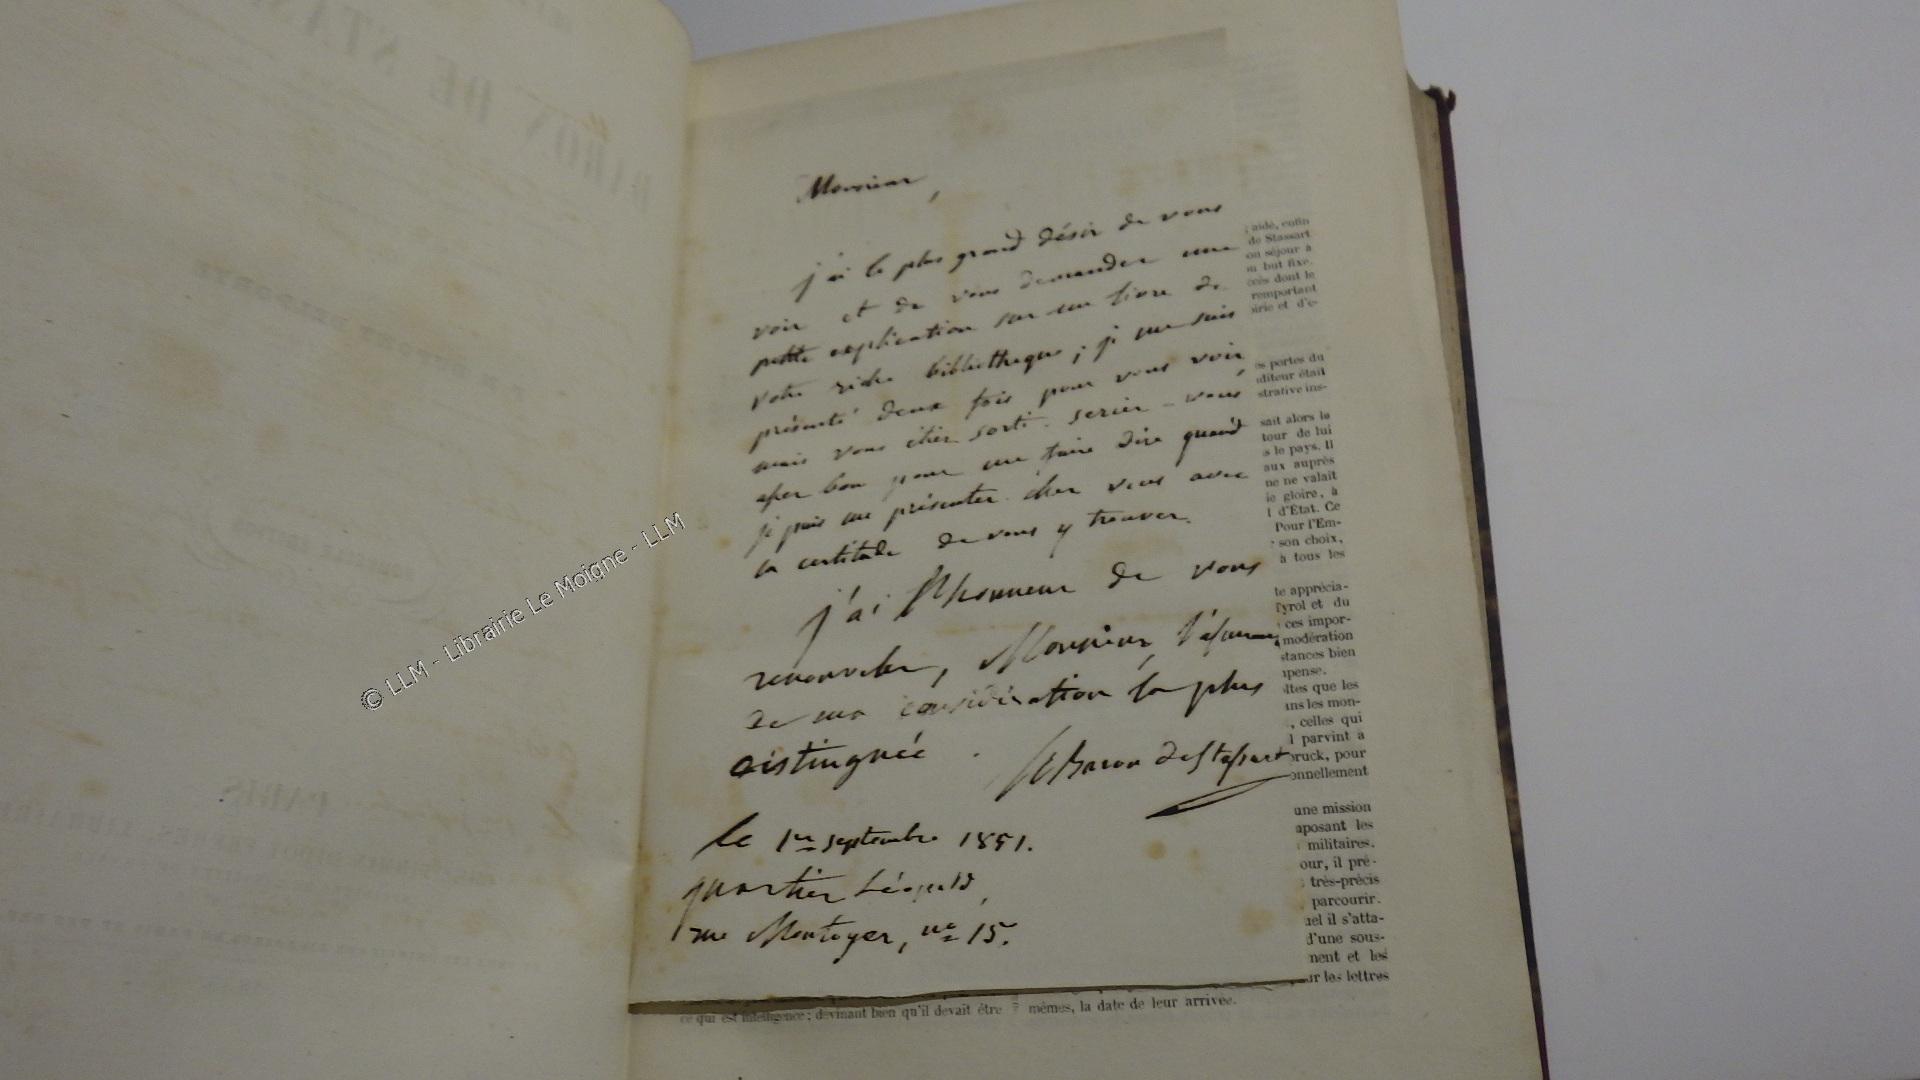 Monsieur,
j'ai le plus grand désir de vous
voir et de vous demander une
petite explication sur un livre de
votre riche bibliothèque ; je me suis
présenté deux fois pour vous voir,
mais vous étiez sorti. seriez-vous
assez bon pour me faire dire quand
je puis me présenter chez vous avec
la certitude de vous y trouver.
j'ai l'honneur de vous
renouveler, Monsieur, l'assurance
de ma considération la plus
distinguée.
Le Baron de Stassart
le 1er septembre 1851.
quartier Léopold,
rue Montoyer, no 15.
; aidé, enfin
de Stassart
on séjour à
n but fixe.
ccès dont le
remportant
irie et d'e-
es portes du
uditeur était
strative ins-
sait alors le
tour de lui
s le pays. Il
aux auprès
ne ne valait
ie gloire, à
l d'État. Ce
Pour l'Em-
son choix,
à tous les
te apprécia-
Tyrol et du
ces impor-
modération
stances bien
pense.
ltes que les
ans les mon-
, celles qui
l parvint à
pruck, pour
onnellement
une mission
aposant les
militaires.
our, il pré-
très-précis
parcourir.
uel il s'atta-
d'une sous-
ment et les
ur les lettres
ce qui est intelligence ; devinant bien qu'il devait être
mêmes, la date de leur arrivée.
BARON DE STASS
PARIS
© LLM - Librairie Le Moigne - LLM